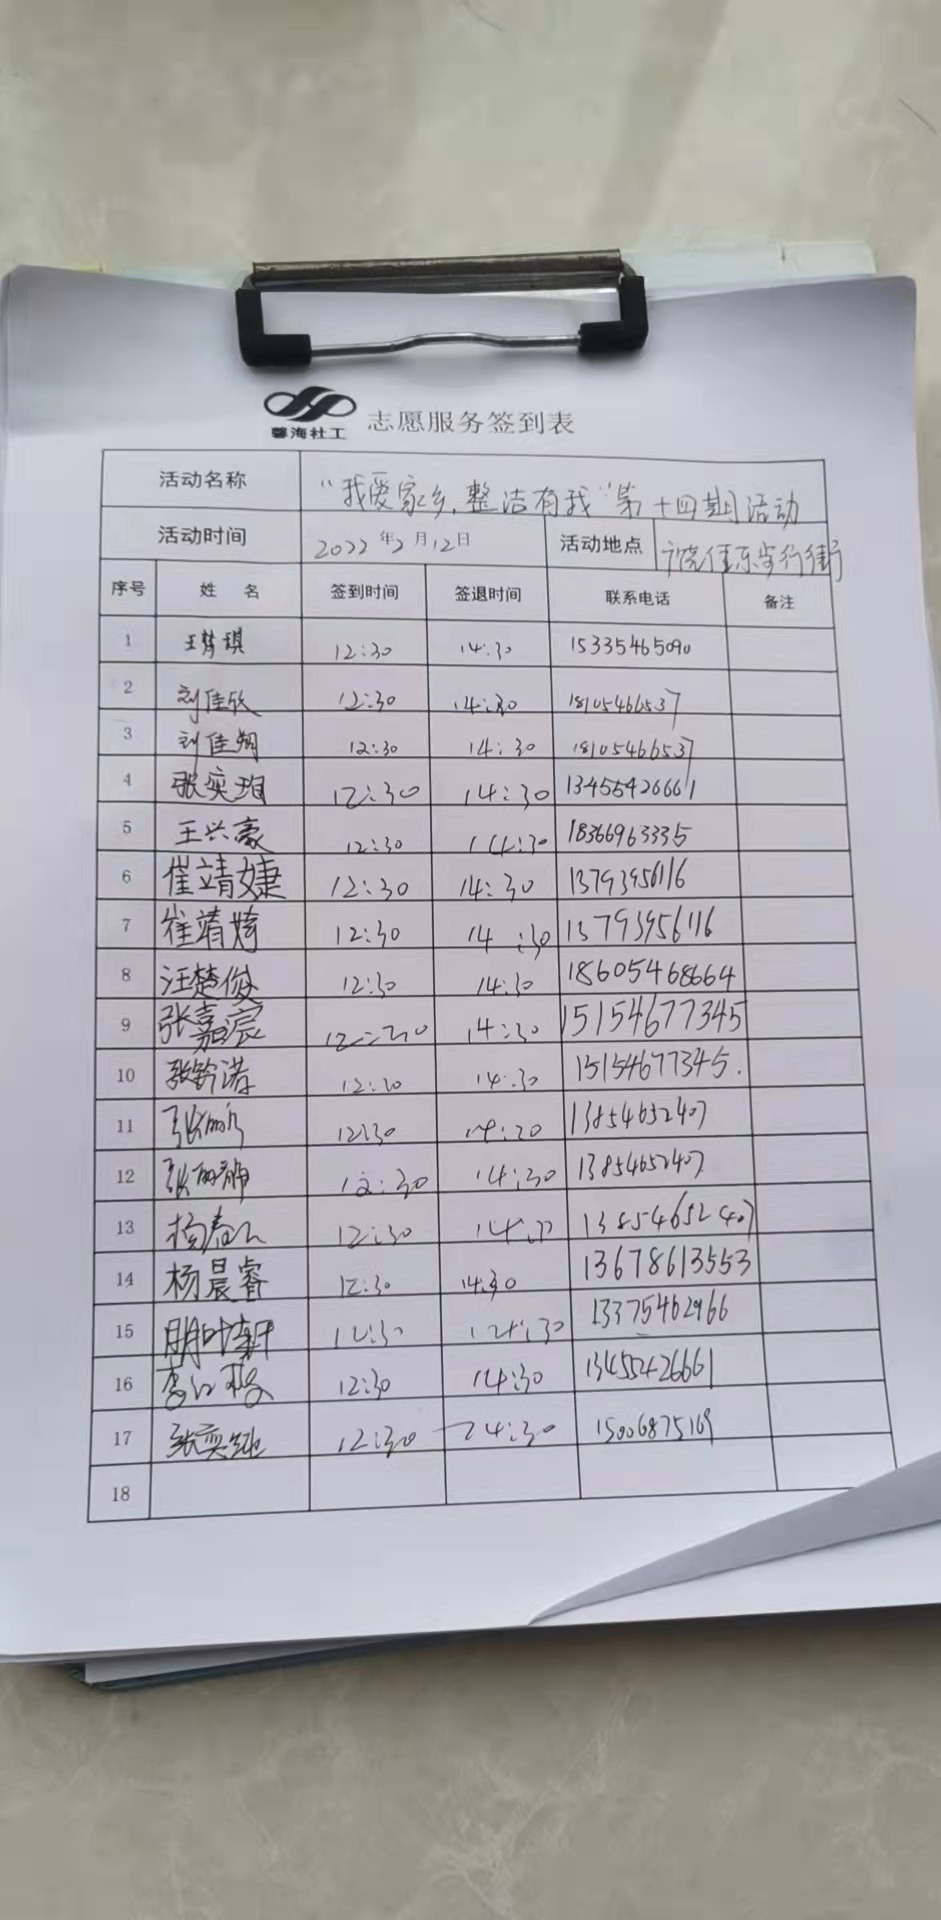 馨海社工 志愿服务签到表
活动名称 "我爱家乡，整洁有我"第十四期活动
活动时间 2022年2月12日 活动地点 步行街
序号 姓 名 签到时间 签退时间 联系电话 备注
1 王梦琪 12:30 14:30 15335465090
2 刘佳欣 12:30 14:30 18105466537
3 刘佳翔 12:30 14:30 18105466537
4 张奕珀 12:30 14:30
5 王兴豪 12:30 14:30 18366963335
6 崔靖婕 12:30 14:30 13793956116
7 崔靖婍 12:30 14:30 13793956116
8 汪楚俊 12:30 14:30
9 张嘉宸 12:30 14:30 15154677345
10 张铃诺 12:30 14:30 15154677345.
11 12:30 14:30 13854652407
12 12:30 14:30 13854652407
13 12:30 14:30 13854652407
14 杨晨睿 12:30 14:30 13678613553
15 12:30 14:30 13375462966
16 12:30 14:30 13455426661
17 12:30 14:30 15006875169
18